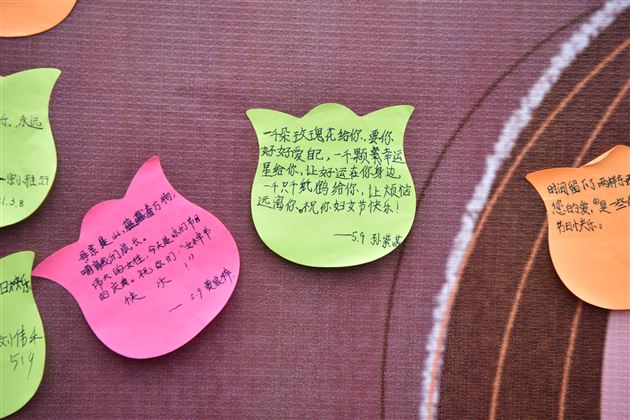 乐、永远
5.9
21.3.8
日快乐
5.9
母亲是山,蕴藏着万物,
哺育我们成长。
伟大的女性,今天是你们的节日
的庆典。祝你们"女神节
快乐!"
——5.9
一千朵玫瑰花给你、要你
好好爱自己,一千颗幸运
星给你,让好运在你身边,
一千只千纸鹤给你,让烦恼
远离你、祝你妇女节快乐!
——5.9 孙
时间留下了两样东西
您的爱,是一
节日快乐。